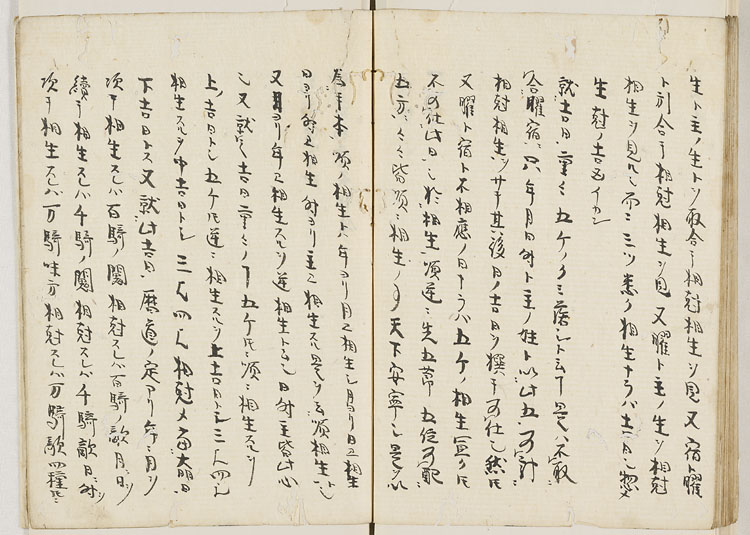 生ト主ノ生トヲ取合テ相尅相生ヲ見又宿ト曜
ト引合テ相尅相生ヲ見又曜ト主ノ生ヲ相尅
相生ヲ見ル而ニ三ツ悉ク相生ナラハ大吉日也惣シ
生尅ノ吉凶イカン
就吉日童々五ケノクミ落シト云テ是ハ不取
合曜宿只年月日時ト主ノ姓ト以此五可計
相尅相生ヲサテ其後日ノ吉日ヲ撰テ可仕也然ニ
又曜ト宿ト不相應ノ日ナラハ五ケノ相生冥々ニ
不可仕此日也於相生順逆ニ先五節五位可配
五方ニ皆順ニ相生ノ事天下安寧也是ヲ以
為手本順ノ相生ト年ヨリ月ニ相生シ月ヨリ日ニ相生
日ヨリ時ニ相生時ヨリ主ニ相生スル是ヲ云順相生ト
又月ヨリ年ニ相生スルヲ逆相生ト云也日時主皆此心
也又就吉日童々ノ下五ケ順ニ相生スルヲ
上ノ吉日トシ五ケ逆ニ相生スルヲ上吉日ト三人四人
相生スルヲ中吉日トシ三人四人相尅メ
下吉日トス又就此吉日ニ暦道ノ定アリ年ニ月ヲ
次テ相生スレハ百騎ノ闘相尅スレハ百騎ノ敵月日ヲ
續テ相生スレハ千騎闘相尅スレハ千騎敵日時ヲ
次テ相生スレハ万騎味方相尅スレハ万騎敵四種